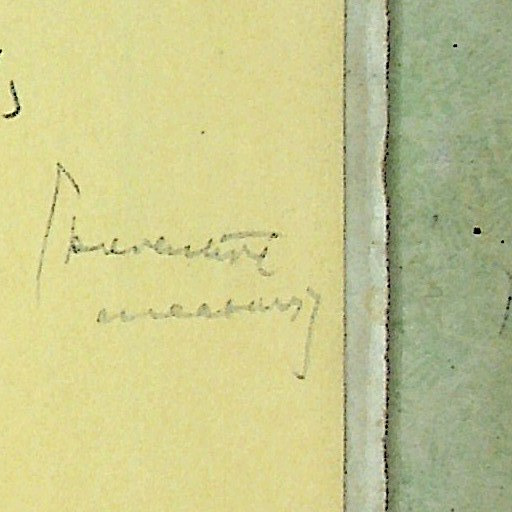 [preventive
measures]